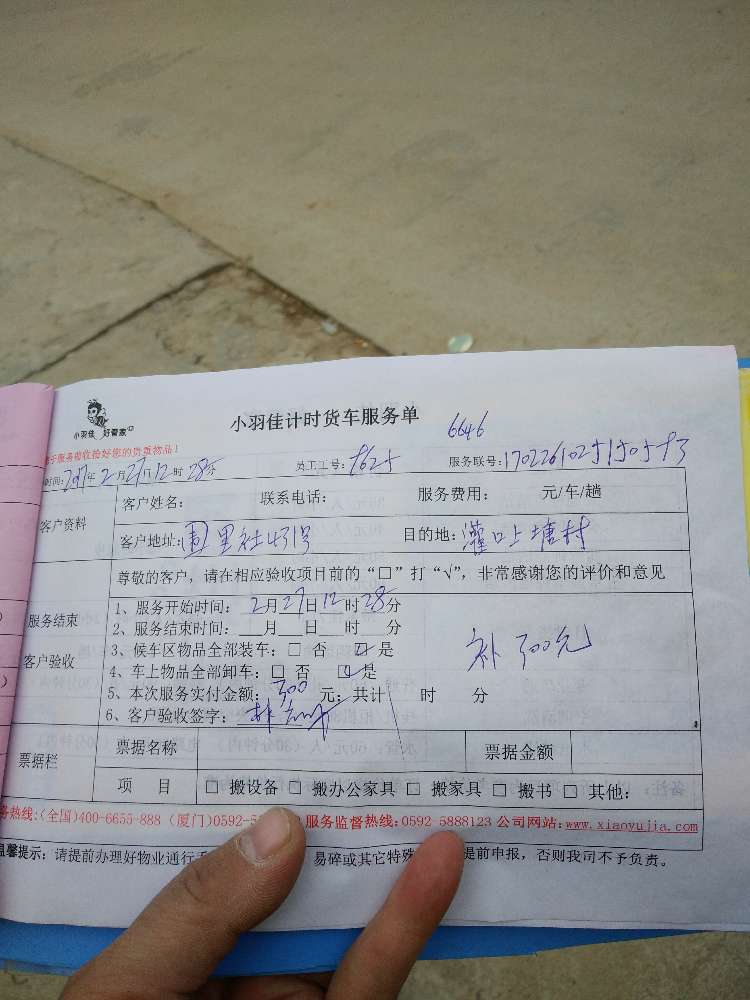 小羽佳 好管家
小羽佳计时货车服务单
6646
服务验收拾好您的贵重物品！
时间: 2017年2月27日12时28分 员工工号: 服务联号:
客户资料 客户姓名: 联系电话: 服务费用: 元/车/趟
客户地址: 里社431号 目的地: 灌口上塘村
尊敬的客户，请在相应验收项目前的“□”打“√”，非常感谢您的评价和意见
服务结束
客户验收
1、服务开始时间: 2月27日12时28分
2、服务结束时间: ___月___日___时 分
3、候车区物品全部装车: □ 否 ☑ 是
4、车上物品全部卸车: □ 否 ☑ 是
5、本次服务实付金额: 300 元；共计 时 分
6、客户验收签字:
补300元
票据栏 票据名称 票据金额
项 目 □ 搬设备 □ 搬办公家具 □ 搬家具 □ 搬书 □ 其他:
务热线:(全国)400-6655-888 (厦门)0592-5 服务监督热线:0592-5888123 公司网站: www.xiaoyujia.com
温馨提示: 请提前办理好物业通行 易碎或其它特殊 提前申报，否则我司不予负责。